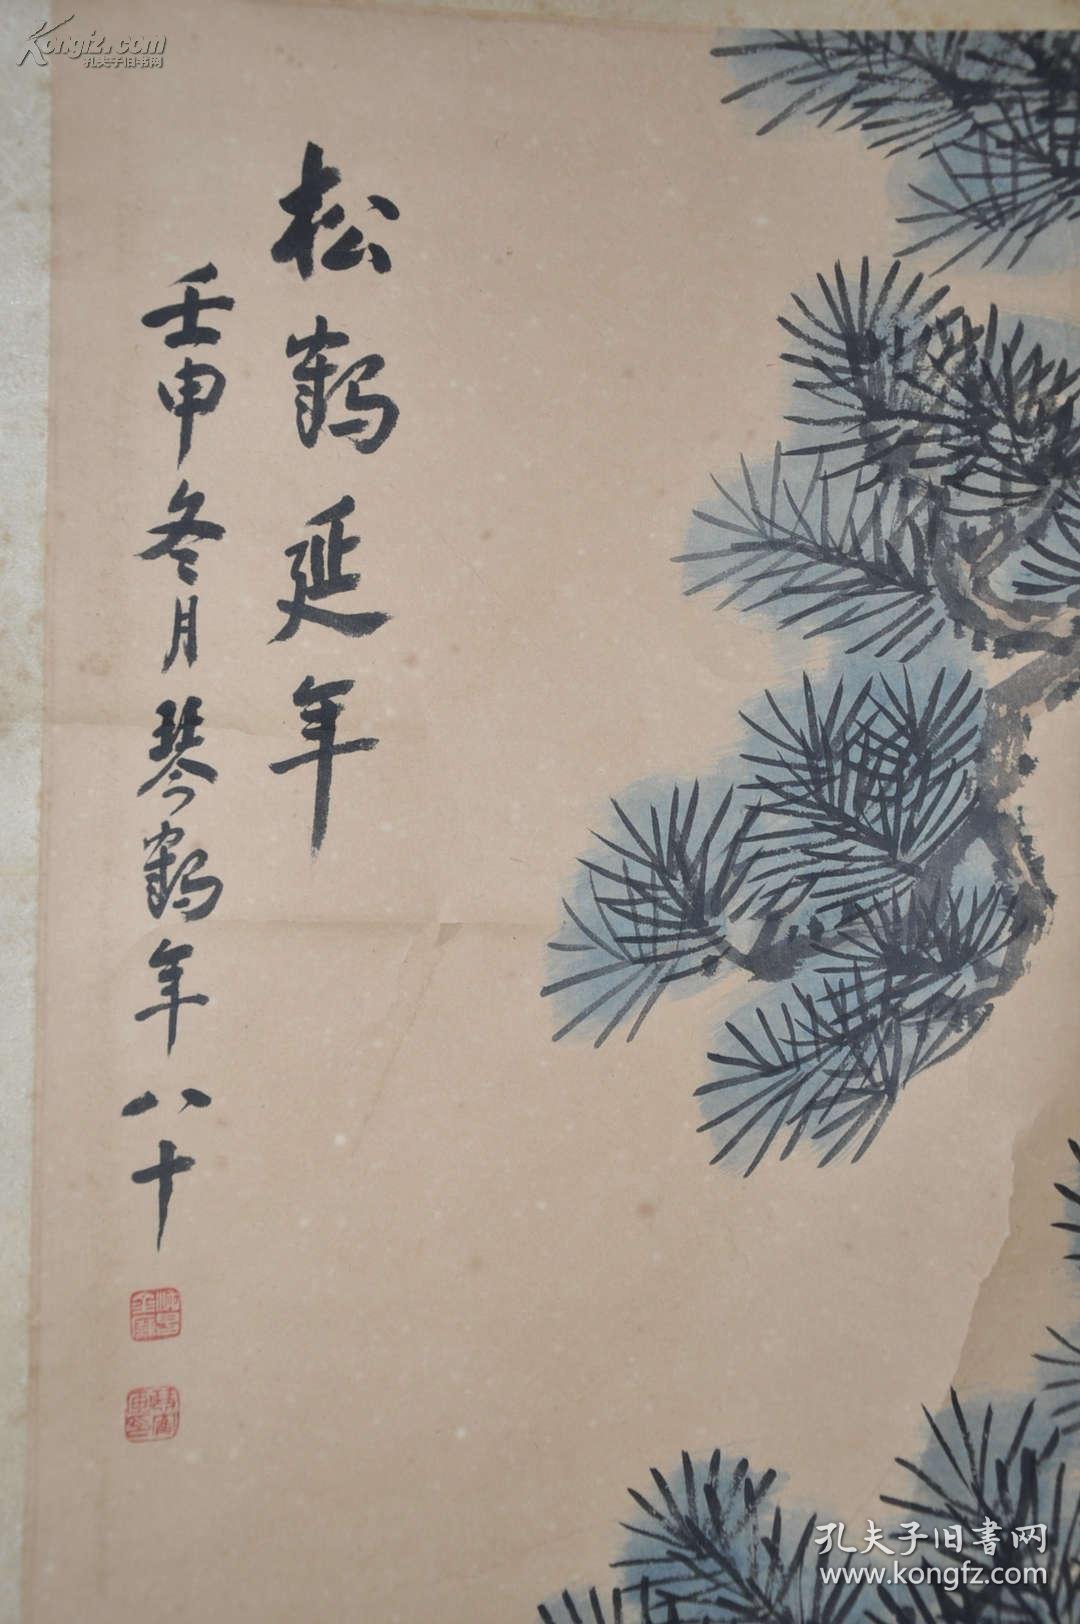 Kongfz.com
孔夫子旧书网
松鹤延年
壬申冬月琴鹤年八十
孔夫子旧书网
www.kongfz.com